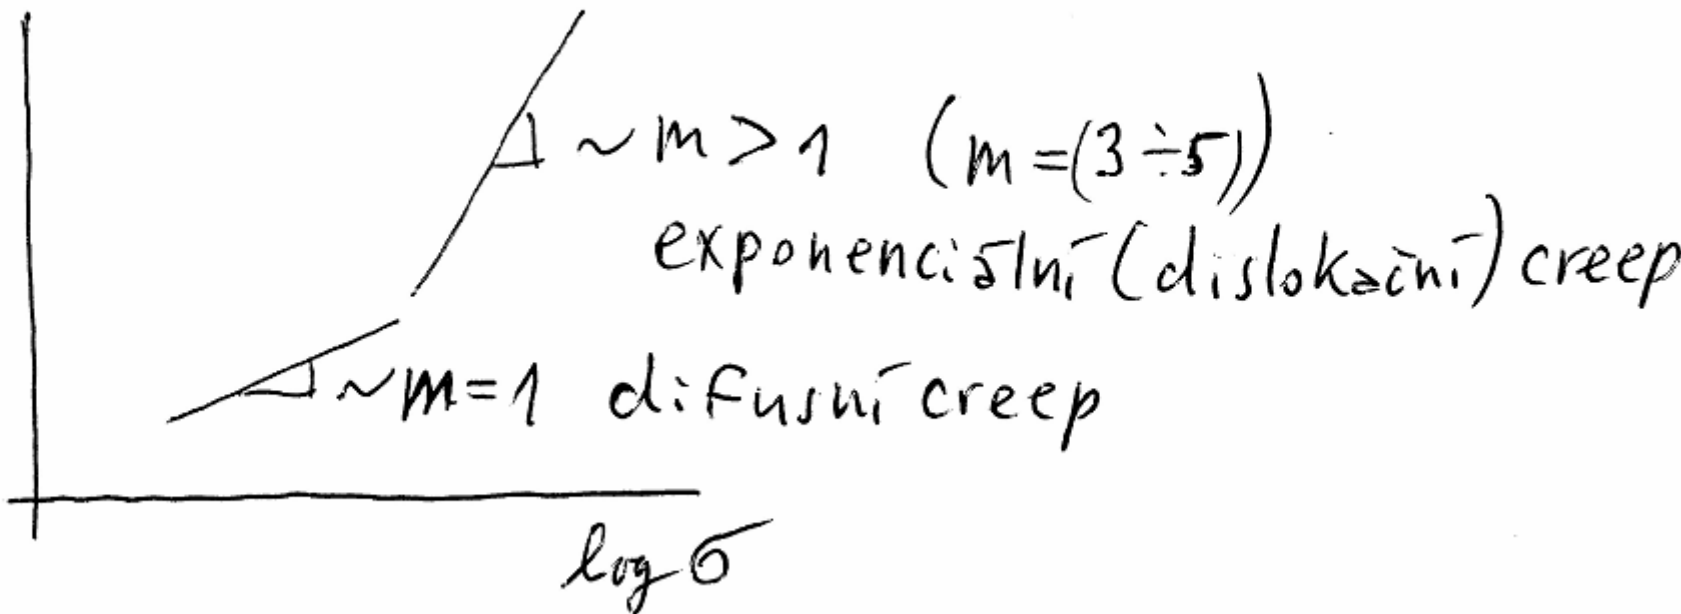 ~m>1 (m=(3÷5))
exponenciální (dislokační) creep
~m=1 difusní creep
log σ